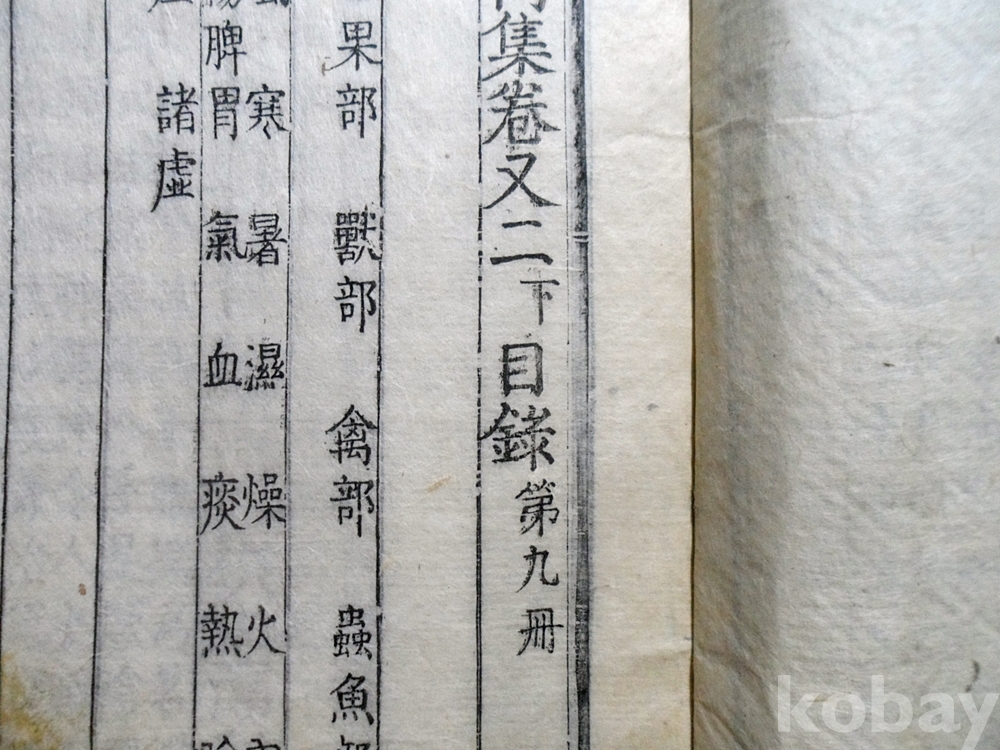 集卷又二下目錄第九冊
果部 獸部 禽部 蟲魚部
寒 暑 濕 燥 火
脾胃 氣 血 痰 熱
諸虛
kobay